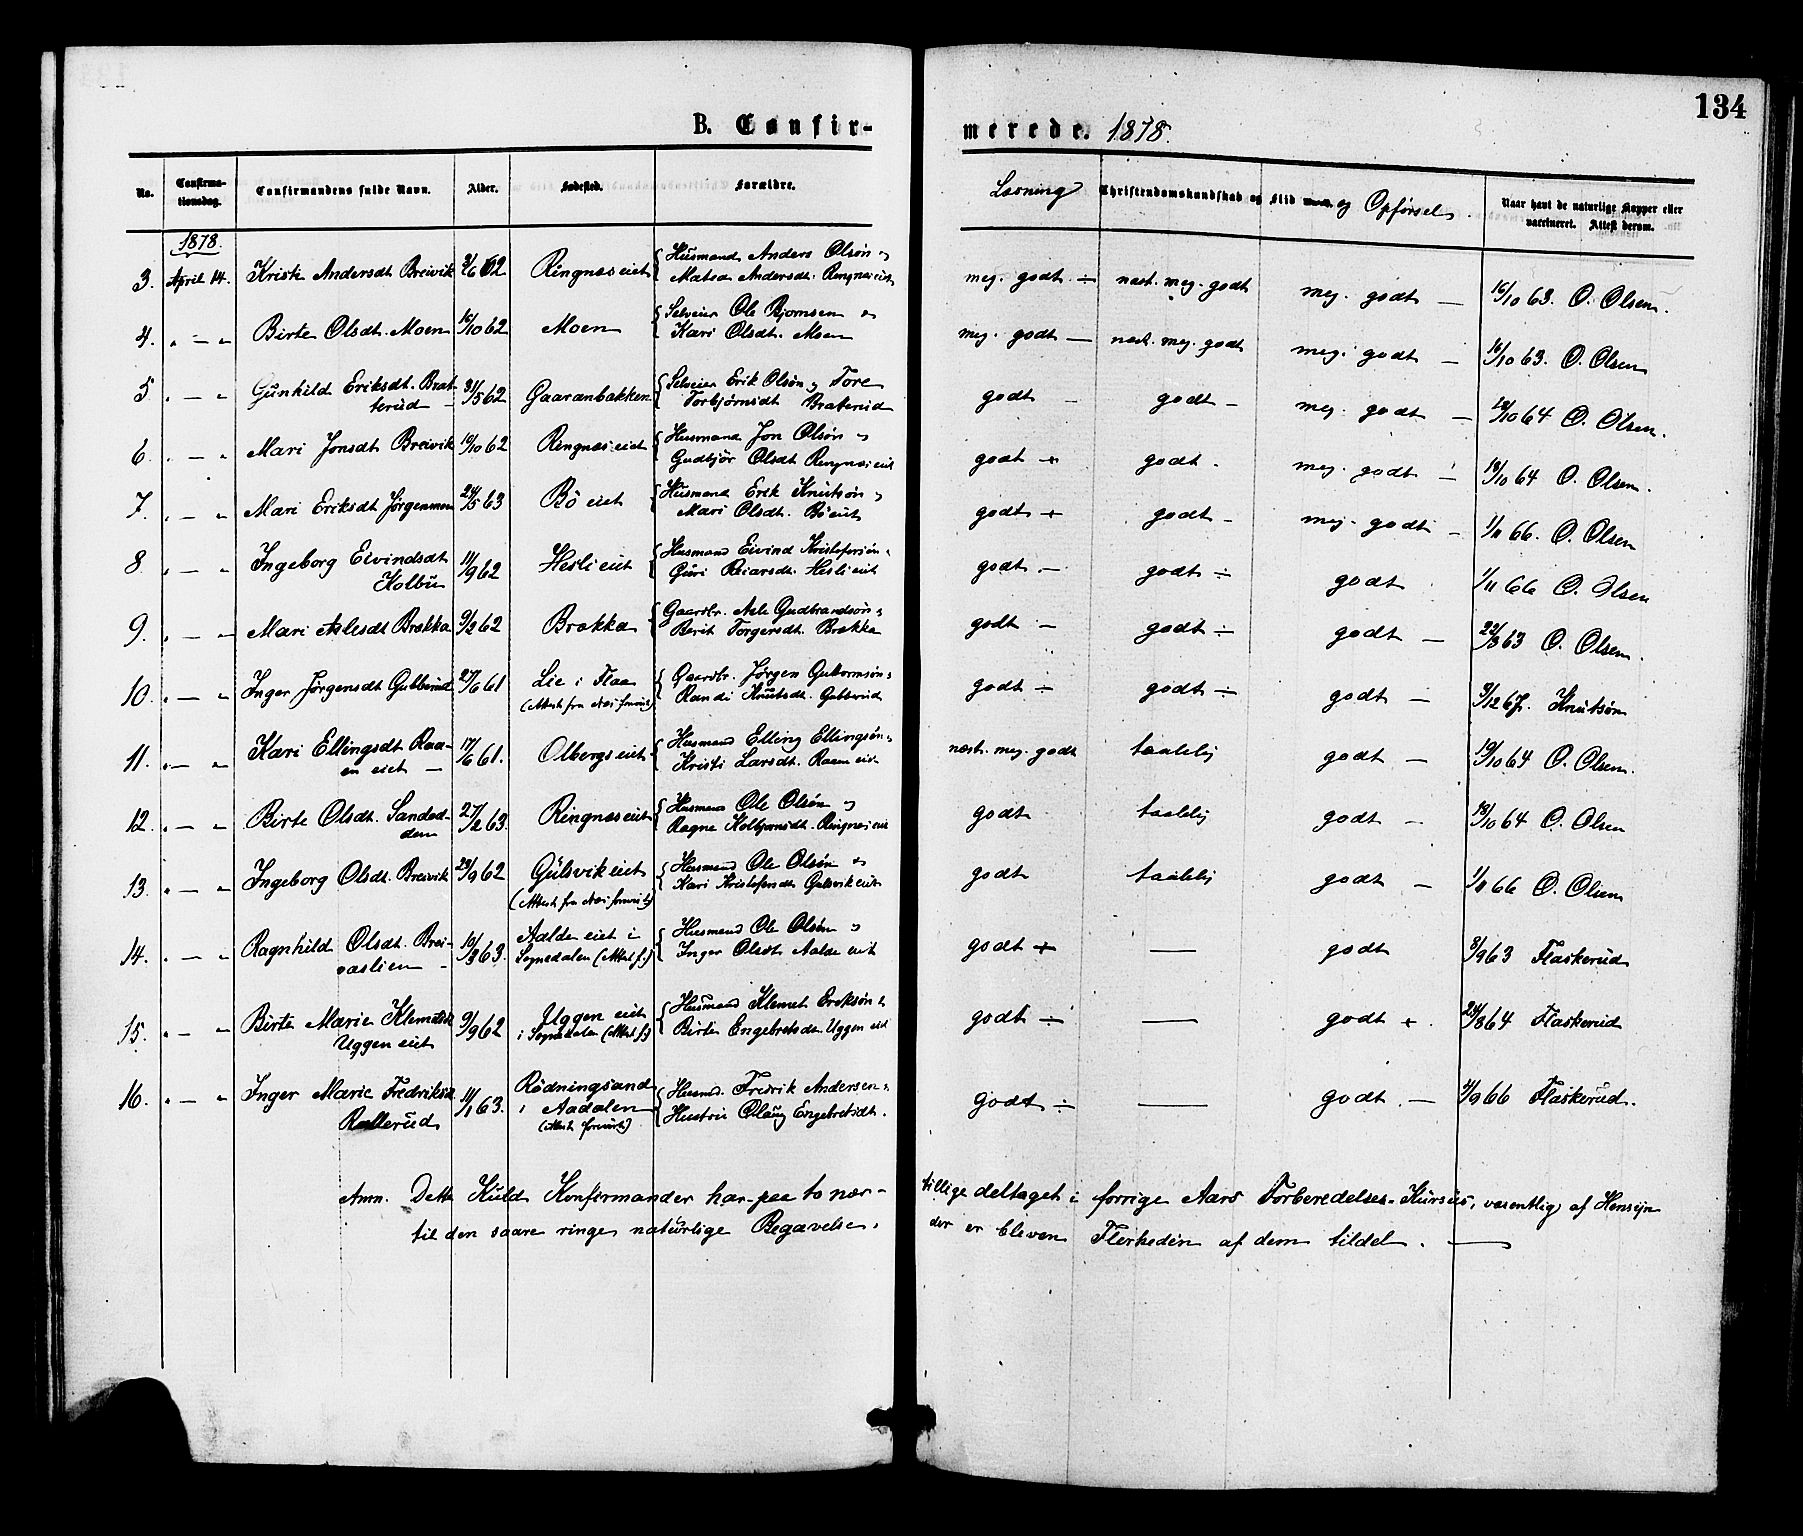 134
B. Confirmerede. 1878.
No. Confirmationsdag. Confirmandens fulde Navn. Alder. Fødested. Forældre. Læsning Christendomskundskab og Flid og Opførsel. Naar havt de naturlige Kopper eller vaccineret. Attest derom.
1878.
3. April 14. Kristi Andersdt Breivik 2/6 62 Ringnæseiet Husmand Anders Olsøn og Andersdt. Ringnæseiet meg. godt ÷ næst. meg. godt meg. godt — 16/10 63. O. Olsen.
4. " — " Birte Olsdt. Moen 16/10 62 Moen Selveier Ole Bjornsen og Kari Olsdt. Moen meg. godt — næst. meg. godt meg. godt — 16/10 63. O. Olsen
5 " — " Gunhild Eriksdt. Bratterud — 31/5 62 Gaaranbakken Selveier Erik Olsøn og Tore Torbjørnsdt Braterud godt — godt — meg. godt — 19/10 64 O. Olsen.
6. " — " Mari Jonsdt Breivik 10/10 62 Ringnæseiet Husmand Jon Olsøn og Gudbjør Olsdt Ringnæseiet godt + godt . meg. godt — 19/10 64 O. Olsen.
7. " — " Mari Eriksdt Jørgenmoen 24/5 63 Bö eiet Husmand Erik Knutsøn og Mari Olsdt. Böeiet godt + godt — meg. godt — 1/11 66. O. Olsen
8 " — " Ingeborg Eivindsdt Kolbu 11/9 62 Hesli eiet Husmand Eivind Kristofersøn " Guri Reiarsdt. Heslieiet godt — godt ÷ godt 1/11 66 O. Olsen
9. " — " Mari Aslesdt Brakka 9/2 62 Brakka Gaardbr. Asle Gudbrandsøn " Berit Torgersdt. Brakka godt — godt ÷ godt — 22/3 63 O. Olsen.
10. " — " Inger Jørgensdt Gubberud 27/6 61 Lie i Flaa (Attest fra Næs forevist) Gaardbr. Jørgen Gutormsøn " Randi Knutsdt. Gubberud godt ÷ godt ÷ godt — 9/12 67. Knutsøn
11. " — " Kari Ellingsdt Raaen eiet — 17/6 61. Olbergseiet Husmand Elling Ellingsøn " Kristi Larsdt. Raaen eiet næst. meg. godt taalelig godt — 19/10 64 O. Olsen.
12. " — " Birte Olsdt. Sandodden 27/2 63. Ringnæseiet Husmand Ole Olsøn og Ragne Kolbjørnsdt. Ringnæseiet godt taalelig godt — 19/10 64 O. Olsen
13. " — " Ingeborg Olsdt. Breivik 23/9 62 Gulsvik eiet (Attest fra Næs forevist) Husmand Ole Olsøn og Kari Kristofersdt Gulsvik eiet godt taalelig godt — 1/11 66 O. Olsen
14. " — " Ragnhild Olsdt. Breivaslien — 10/3 63. Aalde eiet i Sognedalen (Attest f.) Husmand Ole Olsøn og Inger Olsdt Aalde eiet godt + — godt 8/9 63 Flaskerud
15. " — " Birte Marie Klemetsdt Uggen eiet 9/9 62 Uggen eiet i Sognedalen (Attest f.) Husmand Klemet Eriksøn & Birte Engebretsdt Uggen eiet godt ÷ — godt + . 28/8 64 Flaskerud
16. " — " Inger Marie Fredriksdt. Rallerud 11/1 63. Rödningsand i Aadalen (Attest forevist) Husmd. Fredrik Andersen " Hustru Olaug Engebretsdt. godt ÷ — godt — 2/9 66 Flaskerud.
Anm. Dette Kuld Konfirmander har paa to nær tillige deltaget i forrige Aars Forberedelses-Kursus, væsentlig af Hensyn
til den saare ringe naturlige Begavelse, der er bleven Flerheden af dem tildel. —